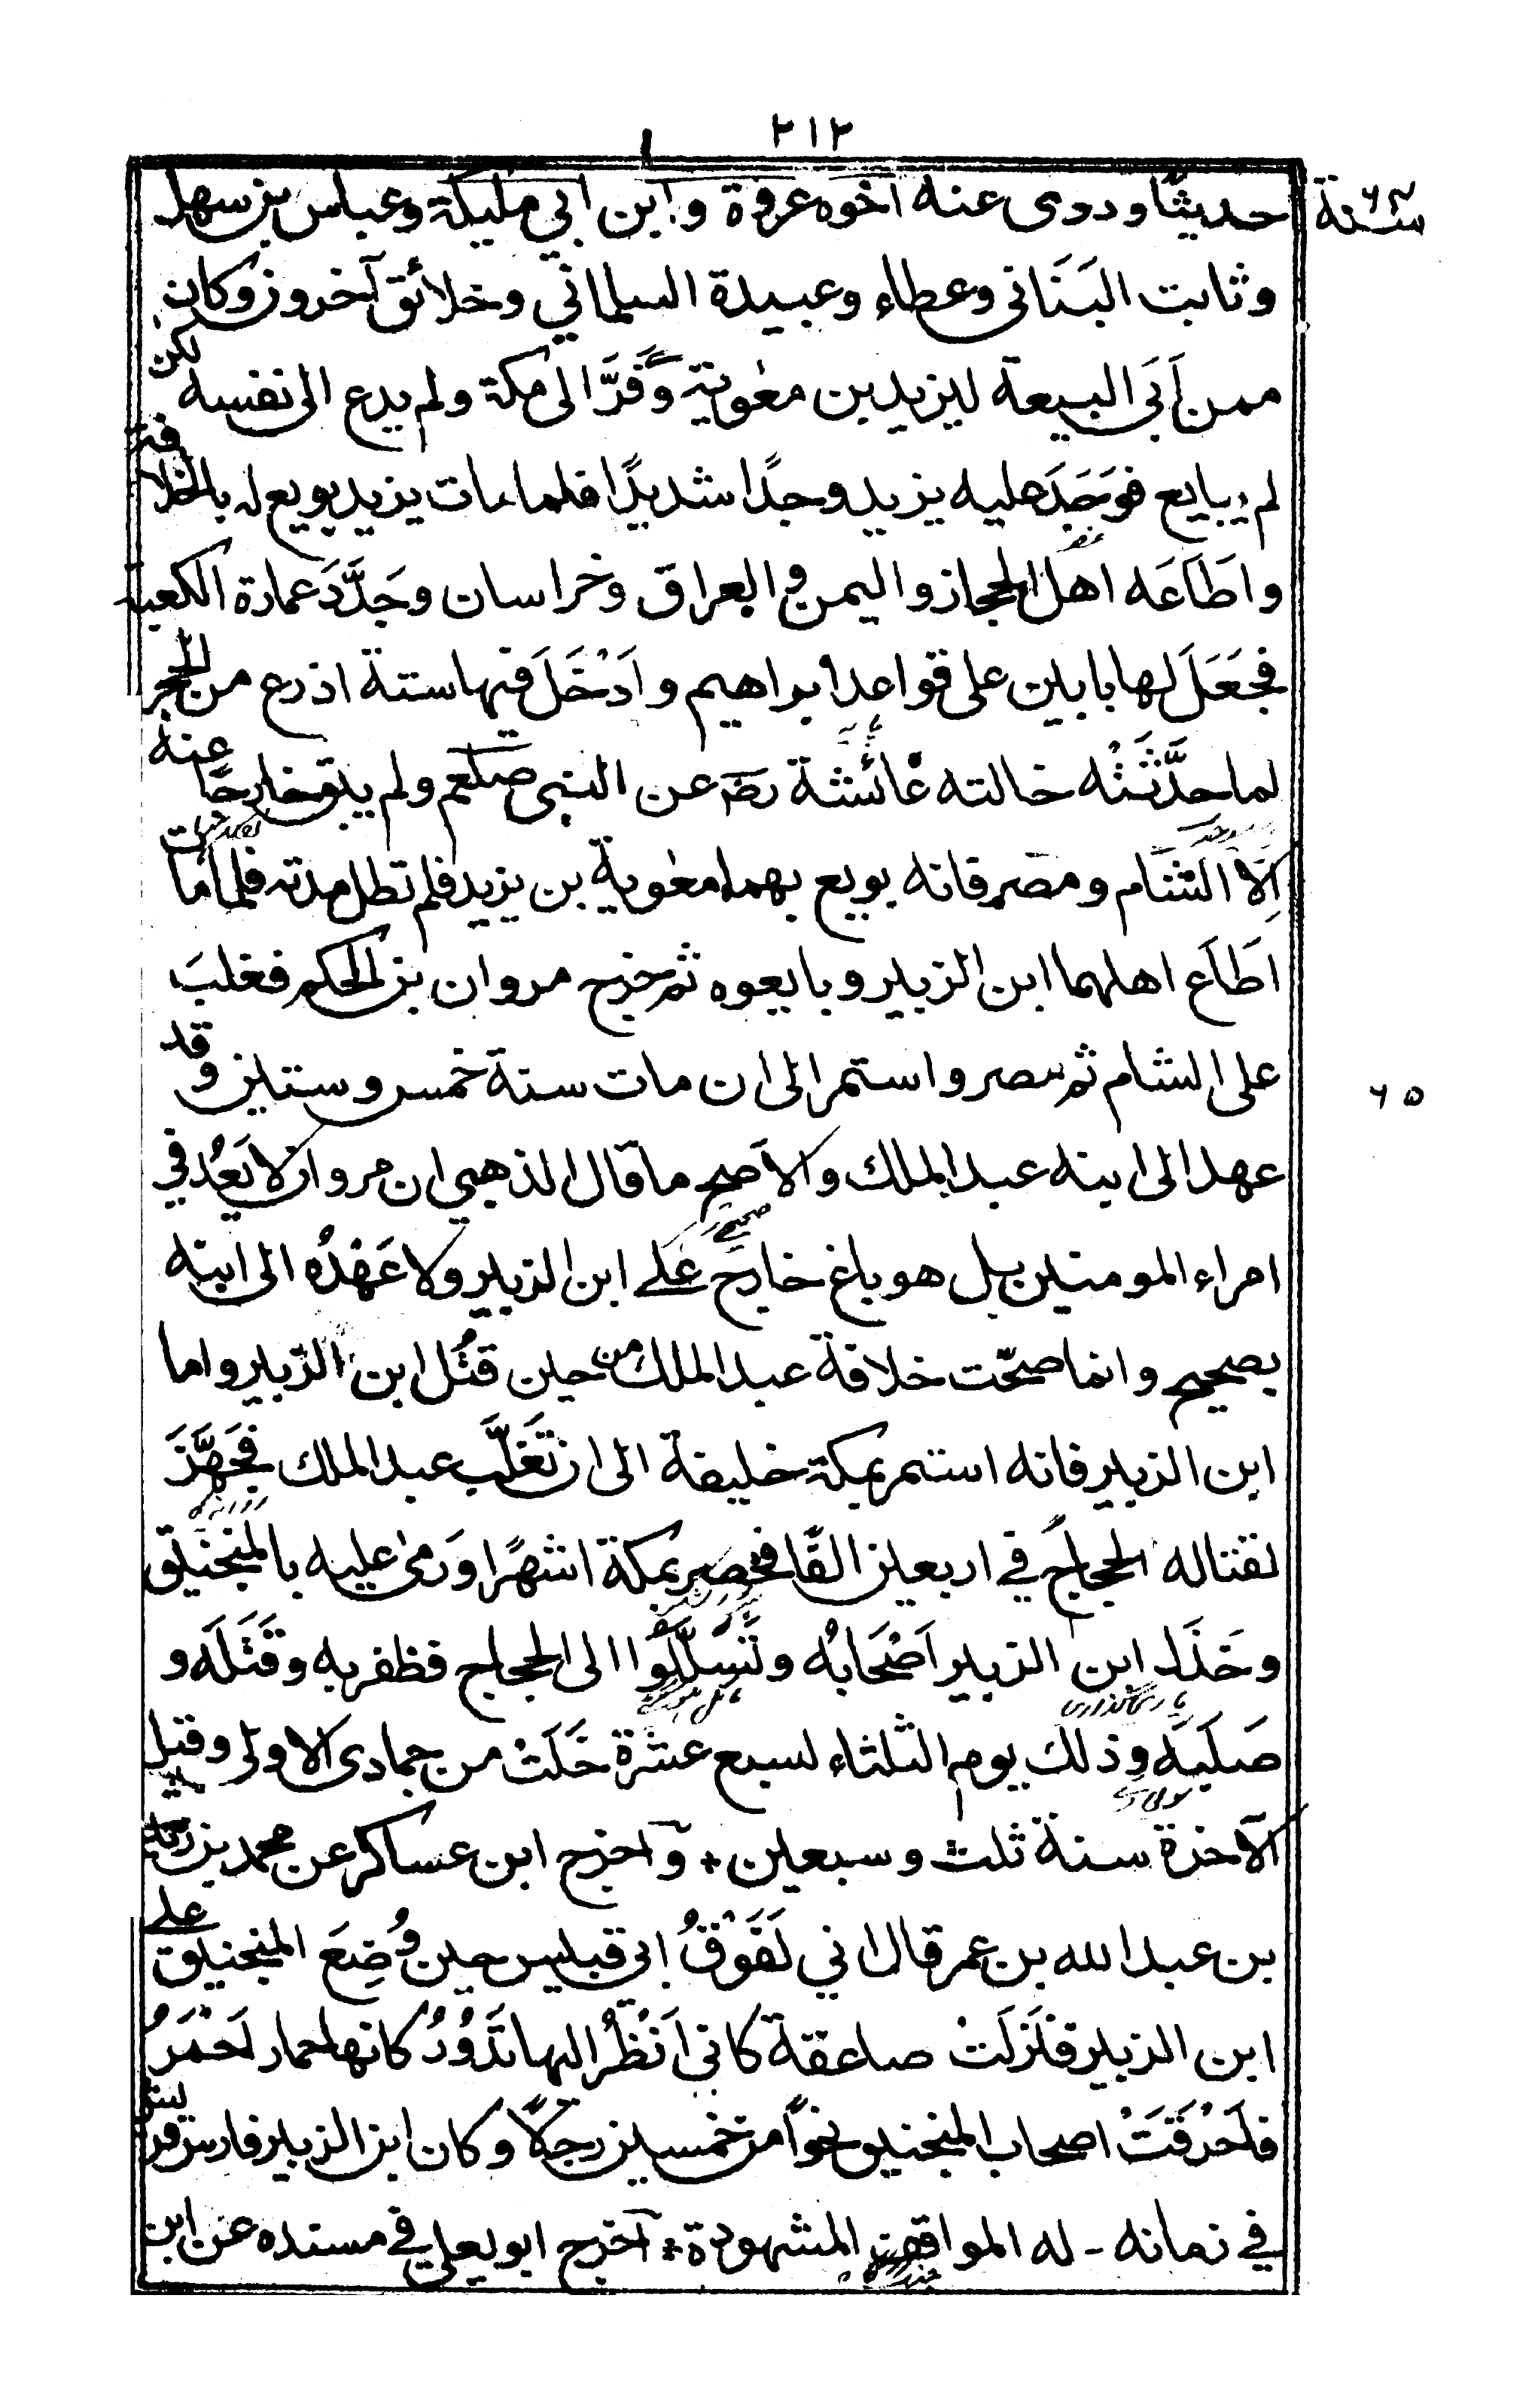 ٢١٢
سنة ٦٤
حديثًا وروى عنه اخوه عروة وابن ابي مليكة وعباس بن سهل
وثابت البَنَاني وعطاء وعبيدة السلماني وخلائق آخرون وكان
ممن اَبَى البيعة ليزيد بن معٰوية وَفَرَّ الى مكة ولم يدع الى نفسه لكن
لم يبايع فوَجَدَ عليه يزيد وجدًا شديدًا فلما مات يزيد بويع له بالخلافة
واَطَاعَه اهل الحجاز واليمن والعراق وخراسان وجَدَّدَ عمارة الكعبة
فجَعَلَ لها بابين على قواعد ابراهيم واَدْخَلَ فيها ستة اذرع من الحجر
لما حدَّثَتْه خالته عائشة رضـ عن النبي صلعم ولم يبق خارجًا عنه
اِلّا الشام ومصر فانه بويع بهما معٰوية بن يزيد فلم تطل مدته فلما مات
اَطَاع اهلهما ابن الزبير وبايعوه ثم خرج مروان بن الحكم فغلبَ
على الشام ثم مصر واستمر الى ان مات سنة خمس وستين وقد
٦٥
عهد الى ابنه عبد الملك والاصح ما قال الذهبي ان مروان لا يُعَدُّ في
امراء المومنين بل هو باغ خارج علے ابن الزبير ولا عَهْدُه الى ابنه
بصحيح وانما صحّت خلافة عبد الملك من حين قُتُل ابن الزبير واما
ابن الزبير فانه استمر بمكة خليفة الى ان تَغَلَّب عبد الملك فجَهَّزَ
لقتاله الحجاج في اربعين الفًا فحصره بمكة اشهرًا ورَمىٰ عليه بالمنجنيق
وخَذَل ابن الزبير اَصْحَابُه وتَسَلَّلُوا الى الحجاج فظفر به وقَتَلَه و
صَلَبَه وذلك يوم الثلثاء لسبع عشرة خَلَتْ من جمادى الاولى وقيل
الآخرة سنة ثلث وسبعين ٭ وآخرج ابن عساكر عن محمد بن زيد
بن عبد الله بن عمر قال اني لَفَوْقُ ابي قبيس حين وُضِعَ المنجنيق علے
ابن الزبير فنَزلَتْ صاعقة كاني اَنْظُرُ اليها تَدُوْرُ كانها حمار اَحْمَرُ
فاَحْرَقَتْ اصحاب المنجنيق نحوًا من خمسين رجلًا وكان ابن الزبير فارس قريش
في زمانه ـ له المواقف المشهودة ٭ آخرج ابو يعلي في مسنده عن ابن